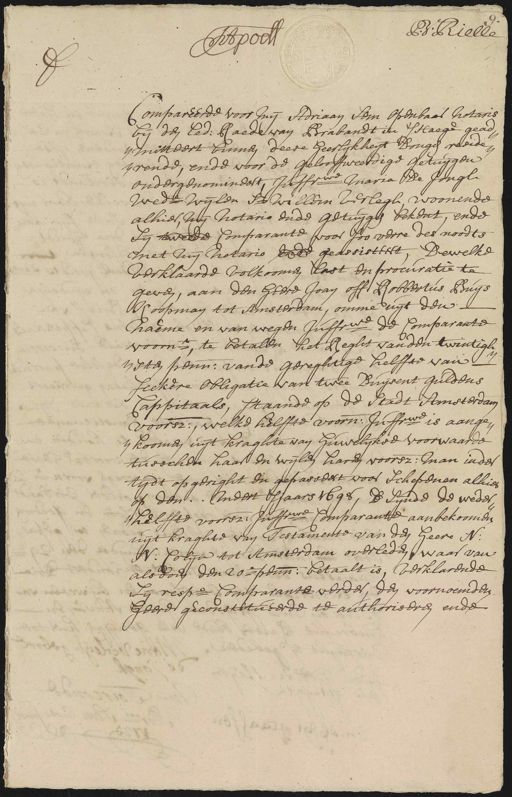 9.
Bt: Rielle
Compareerde voor mij Adriaan Sem Openbaar Notaris
bij den Ed: Raede van Brabandt in s'Hage gead=
=mitteert binnen deese Heerlijkheyt Tonge resideer=
=rende, ende voor de geloofweerdige getuygen
ondergenomineert, Juffrwe Maria De Jongh
Wede wijlen Sr Willem Verlegh, woonende
alhier, mij Notario ende getuygen bekent, ende
sij comparante voor soo verre des noodts
met mij Notario geassisteert, Dewelke
verklaarde volkomen last en procuratie te
geven, aan den Heere Joan off Robbertus Buys
Coopman tot Amsterdam, omme uyt den
naeme en van wegen Juffrwe de Comparante
voornt, te betalen het Reght van den twintigh=
=sten penn: van de gereghtige helfte van
seekere obligatie van twee duysent guldens
Cappitaals, staande op de Stadt Amsterdam
voorsz:, welke helfte voorn: Juffrwe is aange=
=koomen uyt kraghte van Huwelijkse voorwaarde
tusschen haar en wijlen haren voorsz: man inder
tijdt opgeright en gepasseert voor Schepenen alhier
op den .. Maert s'Jaars 1698, & zijnde de weder=
=helfte voorsz: Juffrwe Comparante aanbekomen
uyt kraghte van Testamente van den Heere N:
N: tot Amsterdam overleden, waar van
alsdoen den 20e penn: betaalt is, verklarende
sij respe Comparante verder, den voornoemden
Heere geconstitueerde te authoriseren, ende